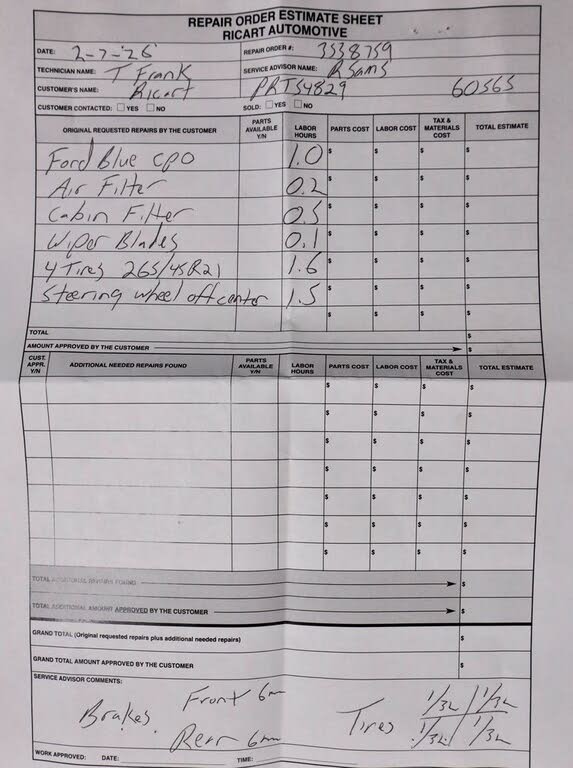 REPAIR ORDER ESTIMATE SHEET
RICART AUTOMOTIVE
DATE: 2-7-26 REPAIR ORDER #: 3538759
TECHNICIAN NAME: T Frank SERVICE ADVISOR NAME: R Sams
CUSTOMER'S NAME: Ricart PRT54829 60565
CUSTOMER CONTACTED: YES NO SOLD: YES NO
ORIGINAL REQUESTED REPAIRS BY THE CUSTOMER PARTS AVAILABLE Y/N LABOR HOURS PARTS COST LABOR COST TAX & MATERIALS COST TOTAL ESTIMATE
Ford Blue CPO 1.0 $ $ $ $
Air Filter 0.2 $ $ $ $
Cabin Filter 0.5 $ $ $ $
Wiper Blades 0.1 $ $ $ $
4 Tires 265/45R21 1.6 $ $ $ $
Steering wheel off center 1.5 $ $ $ $
$ $ $ $
TOTAL $
AMOUNT APPROVED BY THE CUSTOMER $
CUST. APPR. Y/N ADDITIONAL NEEDED REPAIRS FOUND PARTS AVAILABLE Y/N LABOR HOURS PARTS COST LABOR COST TAX & MATERIALS COST TOTAL ESTIMATE
$ $ $ $
$ $ $ $
$ $ $ $
$ $ $ $
$ $ $ $
$ $ $ $
$ $ $ $
TOTAL ADDITIONAL REPAIRS FOUND $
TOTAL ADDITIONAL AMOUNT APPROVED BY THE CUSTOMER $
GRAND TOTAL (Original requested repairs plus additional needed repairs) $
GRAND TOTAL AMOUNT APPROVED BY THE CUSTOMER $
SERVICE ADVISOR COMMENTS:
Brakes Front 6mm Tires 1/32 1/32
Rear 6mm 1/32 1/32
WORK APPROVED: DATE: TIME: